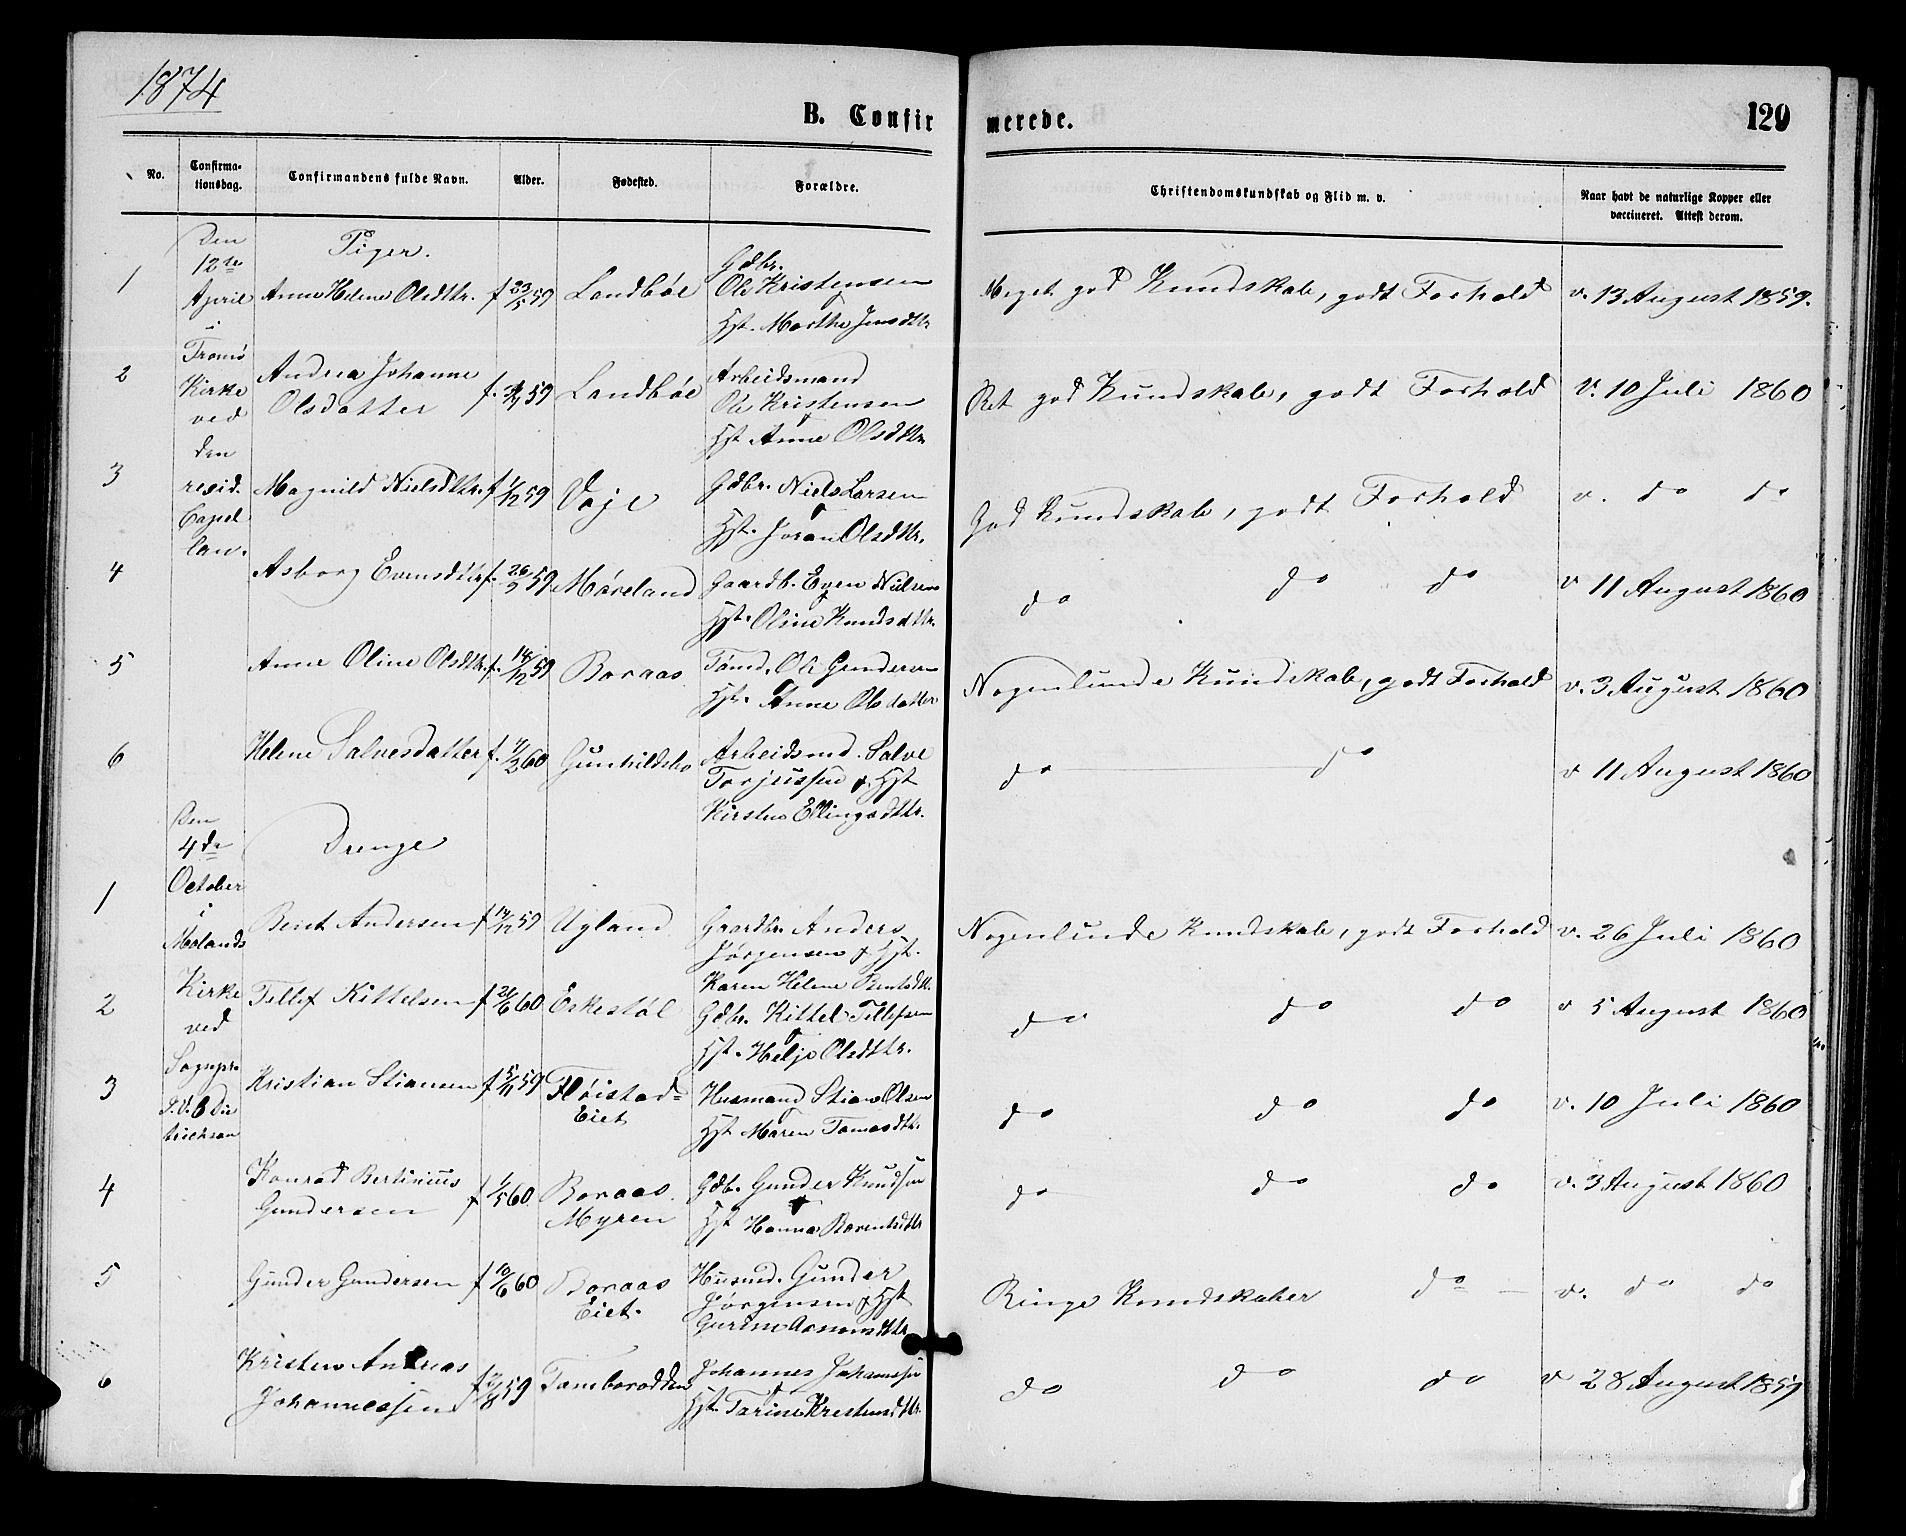 1874
B. Confirmerede.
120
No.
Confirmationsdag.
Confirmandens fulde Navn.
Alder.
Fødested.
Forældre.
Christendomskundskab og Flid m. v.
Naar havt de naturlige Kopper eller
vaccineret. Attest derom.
Den
12te
April
i
Tromø
Kirke
ved
den
resid.
Capel
lan.
Piger.
1 Anne Helene Olsdttr. f 23/5 59 Landbøe Gdbr. Ole Kristensen
Hst. Marthe Jensdttr Meget god Kundskab, godt Forhold v. 13 August 1859.
2 Andrea Johanne
Olsdatter f. 59 Landbøe Arbeidsmand
Ole Kristensen
Hst Anne Olsdttr Ret god Kundskab, godt Forhold V. 10 Juli 1860
3 Magnild Nielsdttr. f 1/12 59 Voje Gdbr. Niels Larsen
Hst. Joran Olsdttr. God Kundskab, godt Forhold v. do do
4 Asborg Evensdttr f. 26/2 59 Møreland Gaardb. Even Nielsen
Hst. Oline Knudsdttr. do do do v 11 August 1860
5 Anne Oline Olsdttr. f. 14/12 59 Boraas Tømd. Ole Gundersen
Hst. Anne Olsdatter Nogenlunde Kundskab, godt Forhold v. 3 August 1860
6 Helene Salvesdatter f. 4/2 60 Gunhildsbo Arbeidsmd. Salve
Torjussen & Hst
Kirsten Ellingsdttr. do do v 11 August 1860
Den
4de
October
i
Molands
Kirke
ved
Sognepr.
P.V.B Die
trichson
Drenge
1 Bent Andersen f 14/12 59 Ugland Gaardbr. Anders
Jørgensen & Hst.
Karen Helene Bentsdtr. Nogenlunde Kundskab, godt Forhold v. 26 Juli 1860
2 Tellef Kittelsen f 21/6 60 Eskestøl Gdbr. Kittel Tellefsen
Hst. Helje Olsdttr. do do do v 5 August 1860
3 Kristian Stiansen f 5/11 59 Fløistad=
Eiet Husmand Stian Olsen
Hst Maren Tomasdtr. do do do v. 10 Juli 1860
4 Konrad Bertinius
Gundersen f 1/5 60 Boraas
Myren Gdb. Gunder Knudsen
Hst Hanna Berentsdttr do do do v. 3 August 1860
5 Gunder Gundersen f 10/6 60 Boraas
Eiet. Husmd. Gunder
Jørgensen & Hst
Gurine Aasmonsdttr Ringe Kundskaber do v. do do
6 Kristen Andreas
Johannessen f 59 Tambarodden Johannes Johannesen
Hst. Tarine Kristensdttr. do do do v 28 August 1859